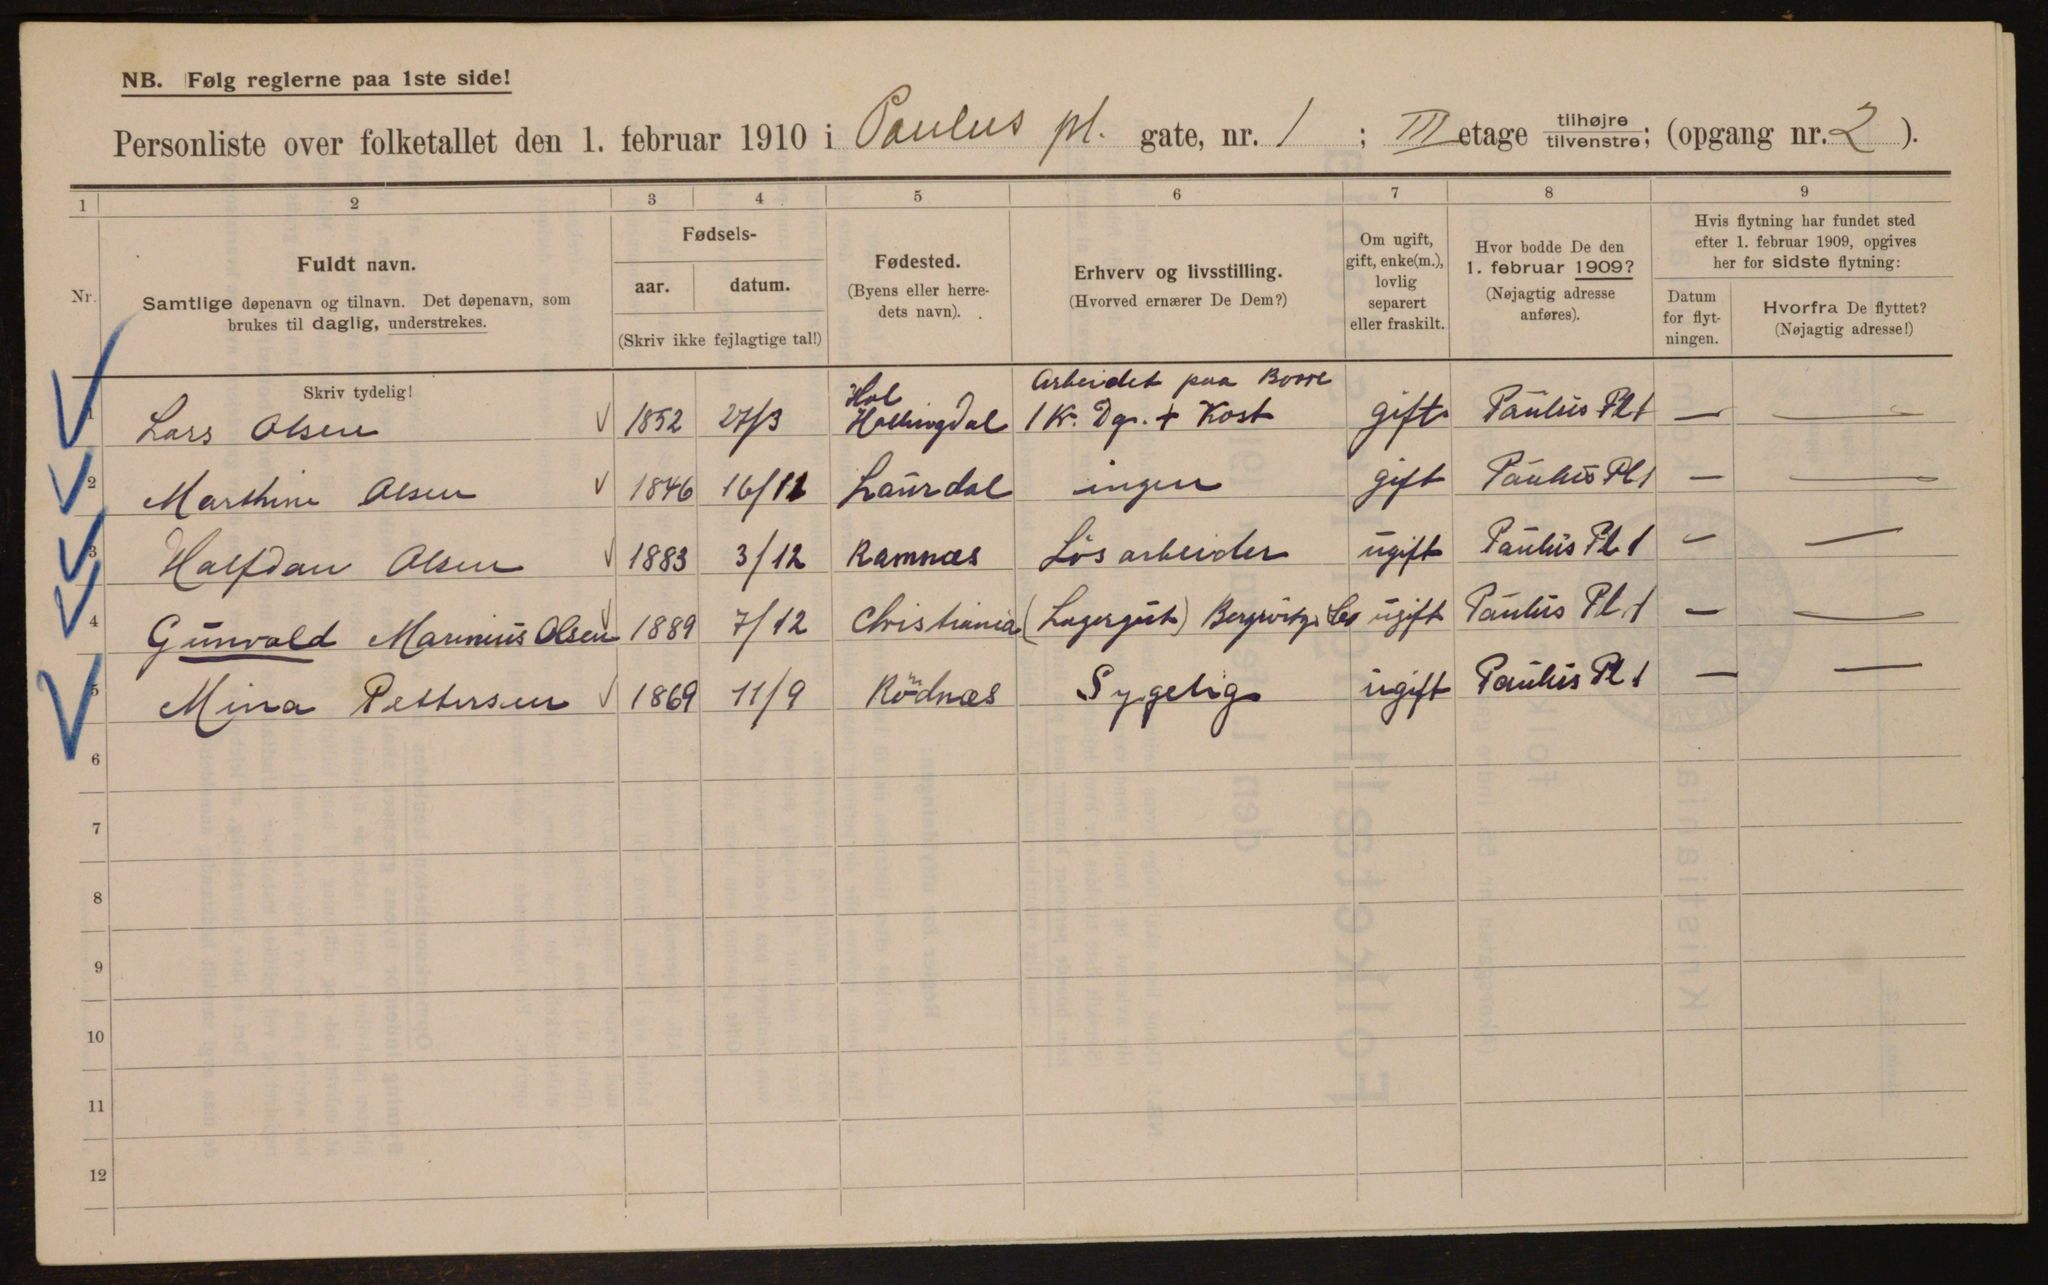 NB. Følg reglerne paa 1ste side!
Personliste over folketallet den 1. februar 1910 i Paulus pl. gate, nr. 1 ; III etage tilhøjre tilvenstre; (opgang nr. 2 ).
1 2 3 4 5 6 7 8 9
Nr.
Fuldt navn.
Samtlige døpenavn og tilnavn. Det døpenavn, som
brukes til daglig, understrekes.
Skriv tydelig!
Fødsels-
aar. datum.
(Skriv ikke fejlagtige tal!)
Fødested.
(Byens eller herre-
dets navn).
Erhverv og livsstilling.
(Hvorved ernærer De Dem?)
Om ugift,
gift, enke(m.),
lovlig
separert
eller fraskilt.
Hvor bodde De den
1. februar 1909?
(Nøjagtig adresse
anføres).
Hvis flytning har fundet sted
efter 1. februar 1909, opgives
her for sidste flytning:
Datum
for flyt-
ningen.
Hvorfra De flyttet?
(Nøjagtig adresse!)
Hol Arbeidet paa
1 Lars Olsen 1852 27/3 Hallingdal 1 Kr. Dg. + Kost gift Paulus Pl 1 — —
2 Marthine Olsen 1846 16/12 Laurdal ingen gift Paulus Pl 1 — —
3 Halfdan Olsen 1883 3/12 Ramnæs Løsarbeider ugift Paulus Pl. 1 — —
4 Gunvald Marinius Olsen 1889 7/12 Christiania (Lagergut) ugift Paulus Pl. 1 — —
5 Mina Pettersen 1869 11/9 Rödnæs Sygelig ugift Paulus Pl 1 — —
6
7
8
9
10
11
12